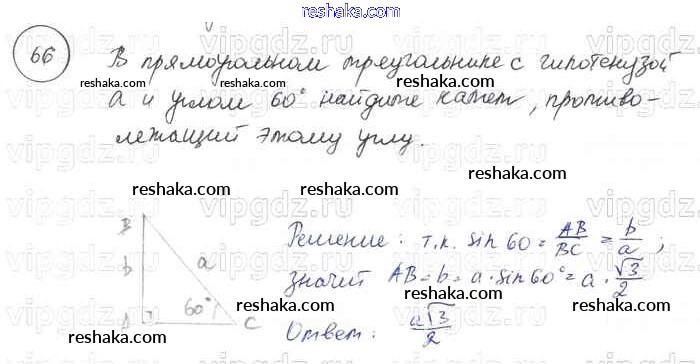 reshaka.com
66 В прямоугольном треугольнике с гипотенузой
a и углом 60° найдите катет, противо-
лежащий этому углу.
reshaka.com reshaka.com reshaka.com
reshaka.com reshaka.com reshaka.com
reshaka.com reshaka.com
B
b a
60°
A C
Решение: т.к. sin 60 = AB/BC = b/a;
значит AB = b = a · sin 60° = a · √3/2
Ответ: a√3/2
reshaka.com reshaka.com reshaka.com
reshaka.com reshaka.com
vipgdz.ru vipgdz.ru vipgdz.ru